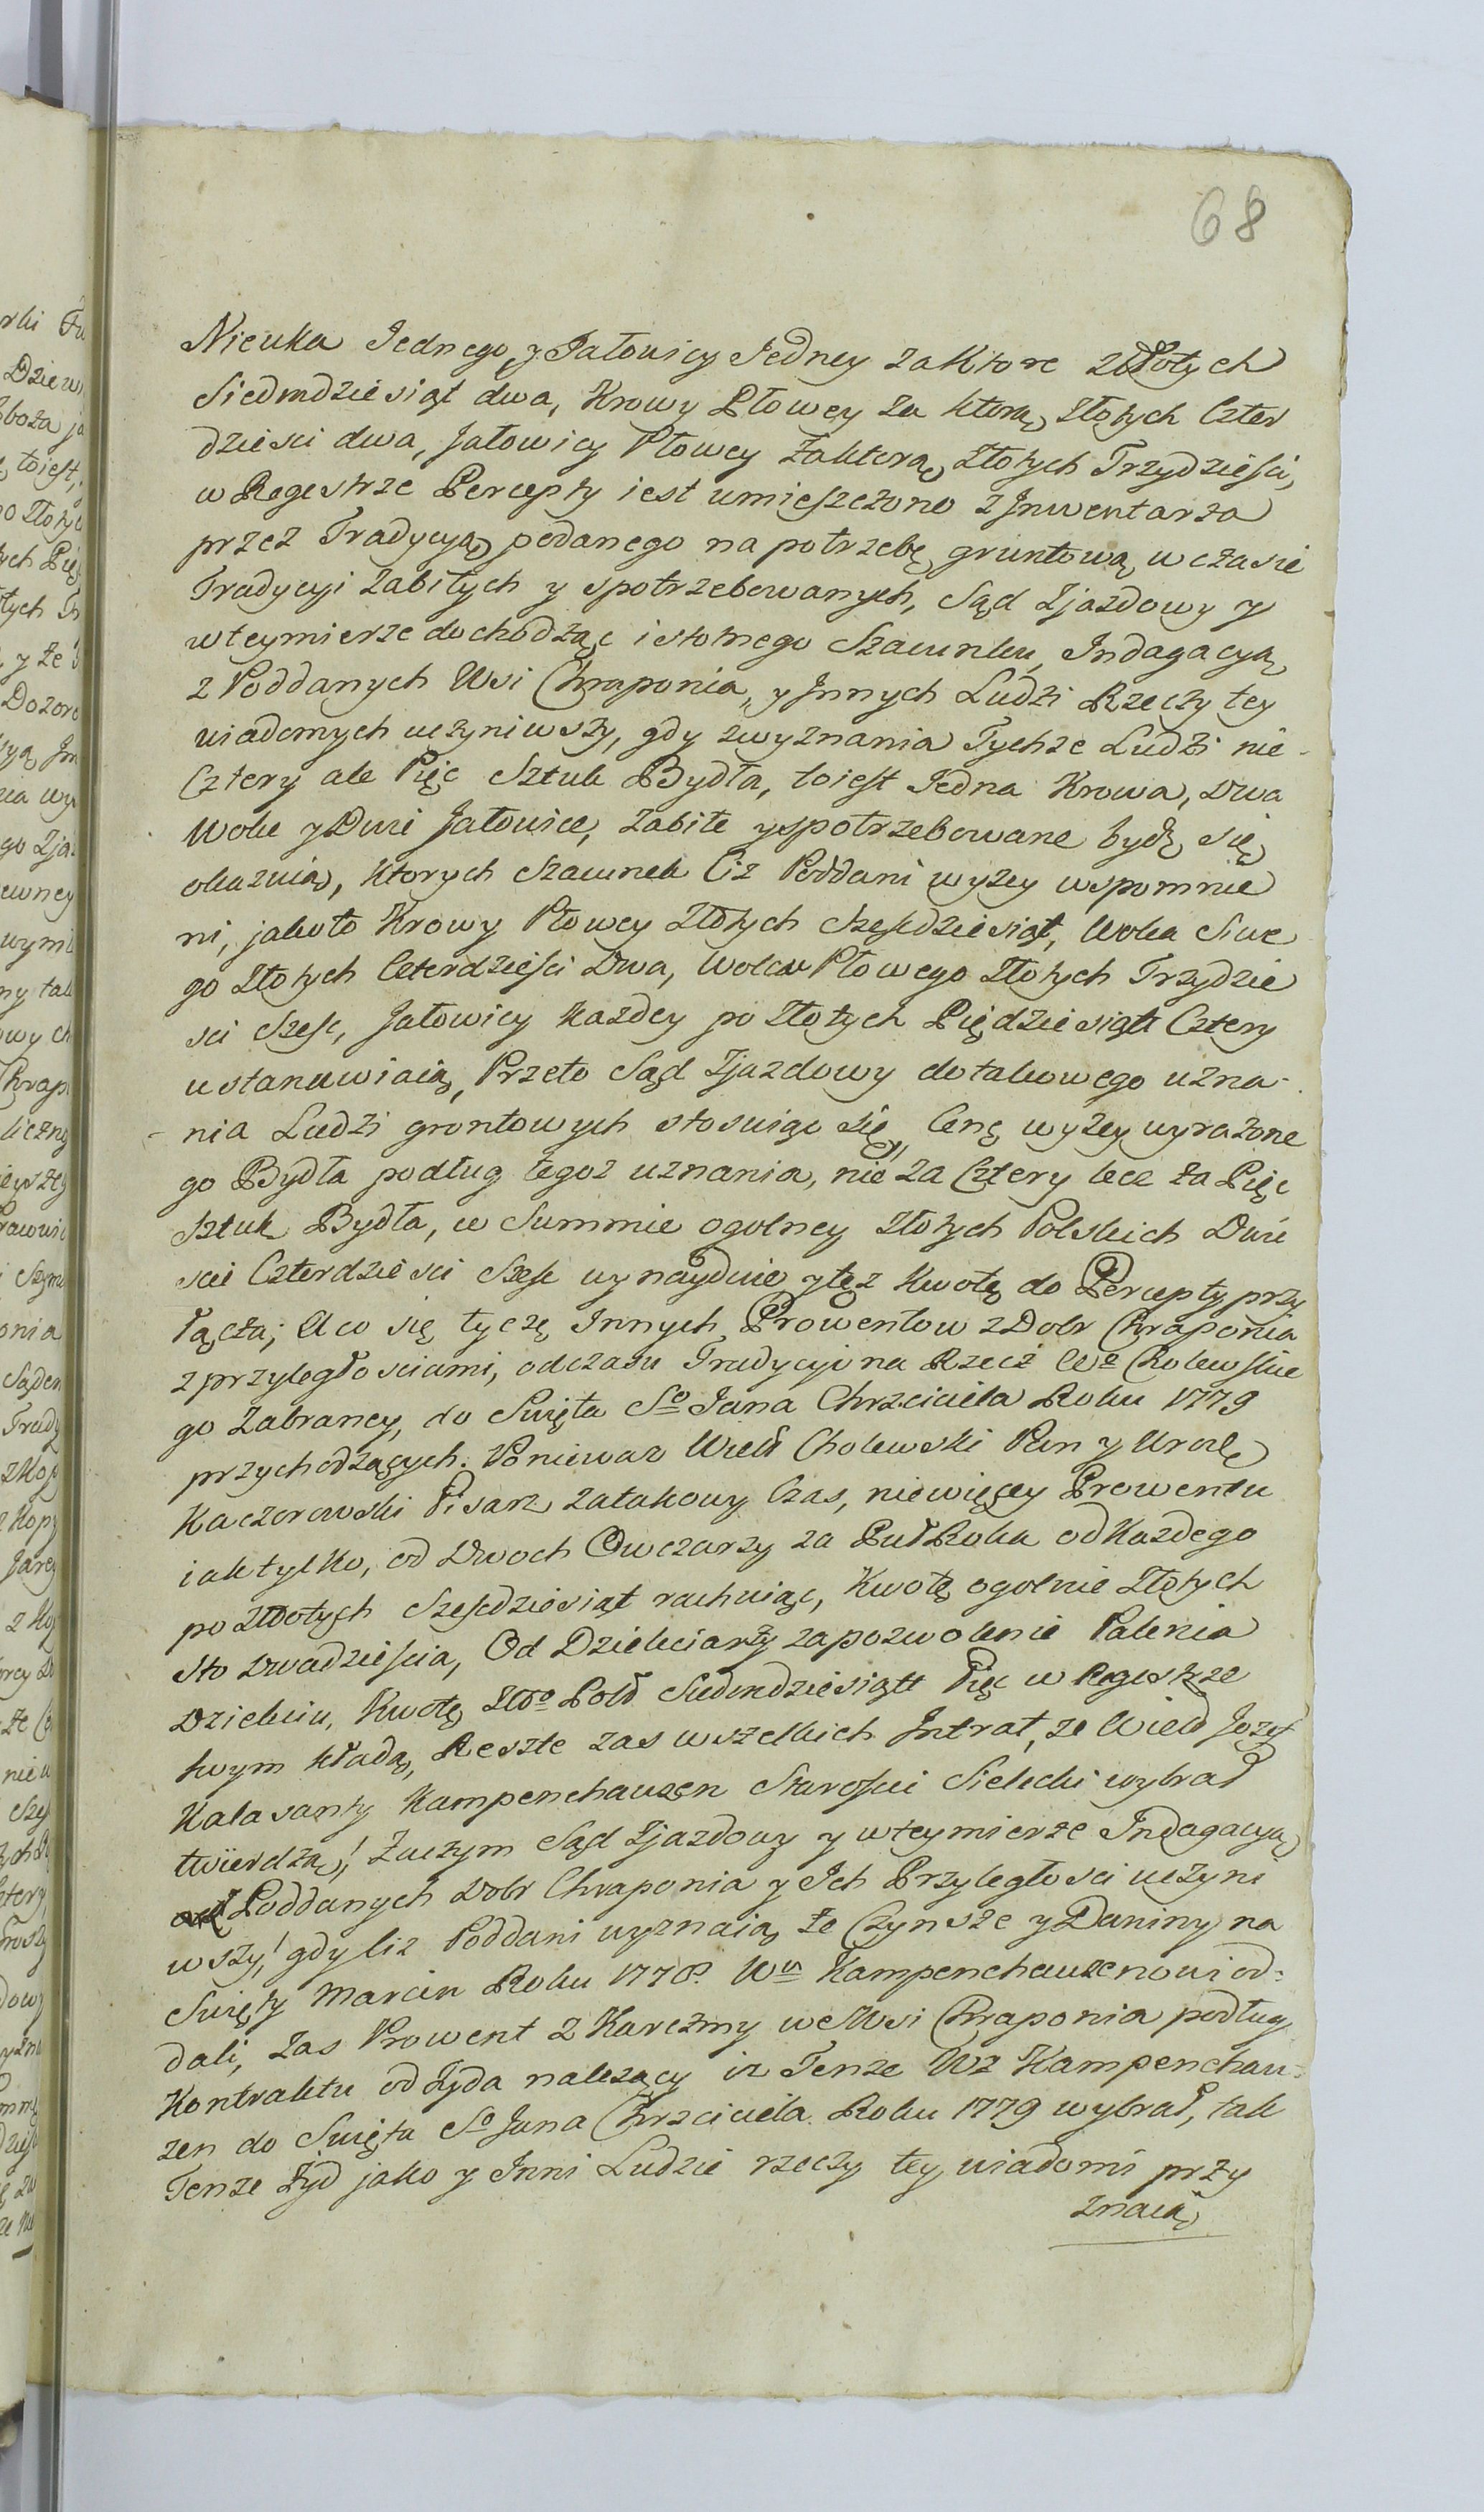 68
Nieuka Jednego, y Jałowicy Jedney za Ktore Złotych
Siedmdziesiąt dwa, Krowy Płowey za ktorą Złotych Czter
dziesci dwa, Jałowicy Płowey zaktorą Złotych Trzydziesci,
w Regestrze Percepty iest umieszczono z Jnwentarza
przez Tradycyą podanego na potrzebę gruntową w czasie
Tradycyi zabitych y spotrzebowanych, Sąd Zjazdowy y
wteymierze dochodząc istotnego Szacunku, Indagacyą
z Poddanych Wsi Chraponia, y Jnnych Ludzi Rzeczy tey
wiadomych uczyniwszy, gdy zwyznania Tychze Ludzi nie-
Cztery ale Pięc Sztuk Bydła, toiest Jedna Krowa, Dwa
Wołu y Dwi Jałowice, zabite yspotrzebowane bydź się
okazuią, ktorych Szacunek Ciz Poddani wyzey wspomnie
ni, jakoto Krowy Płowey Złotych Szescdziesiąt, Wołu Siwe
go Złotych Czterdziesci Dwa, Wołu Płowego Złotych Trzydzie
sci Szesc, Jałowicy Kazdey po Złotych Pięдziesiąt Cztery
ustanawiaią, Przeto Sąd Zjazdowy dotakowego uzna-
-nia Ludzi grontowych stosuiąc się, Cenę wyzey wyrazone
go Bydła podług tegoz uznania, nie za Cztery lecz za Pięc
Sztuk Bydła, w Summie ogolney Złotych Polskich Dwie
scie Czterdziesci Szesc wynayduie ytęz Kwotę do Percepty przy
łącza; Aco się tyczę Innych Prowentow z Dobr Chraponia
z przyległosciami, odczasu Tradycyi na Rzecz Wo Cholewskie
go zabraney, do Swięta So Jana Chrzciciela Roku 1779
przychodzących. Poniewaz Wielo Cholewski Pan y Urodz
Kaczorowski Pisarz zatakowy Czas, niewięcey Prowentu
iaktylko, od Dwoch Owczarzy za Puł Roku od Kazdego
po Złotych Szescdziesiąt rachuiąc, Kwotę ogolnie Złotych
Sto Dwadziescia, Od Dziekciarzy zapozwolenie Palenia
Dziekciu, Kwotę Zło Pold Siedmdziesiątt Pięc w Regestrze
swym kładą, Reszte zas wszelkich Intrat, ze Wield Jozef
Kalasanty Kampenchauzen Starosci Sielecki wybrał
twierdzą! Zaczym Sąd Zjazdowy y wteymierze Indagacyą
Poddanych Dobr Chraponia y Ich Przyległosci uczyni
wszy! gdy Ciz Poddani wyznaią ze Czynsze y Daniny na
Swięty Marcin Roku 1778. Wu Kampenchauzenowi od=
dali, zas Prowent z Karczmy we Wsi Chraponia podług
Kontraktu od Zyda nalezący iz Tenze Wz Kampenchau=
zen do Swięta So Jana Chrzciciela Roku 1779 wybrał, tak
Tenze Zyd jako y Inni Ludzie rzeczy tey wiadomi przy
znaią